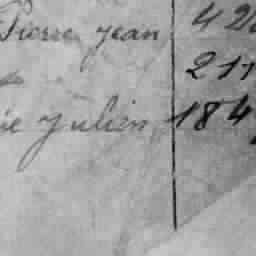 Pierre jean 42
211
ie Julien 184